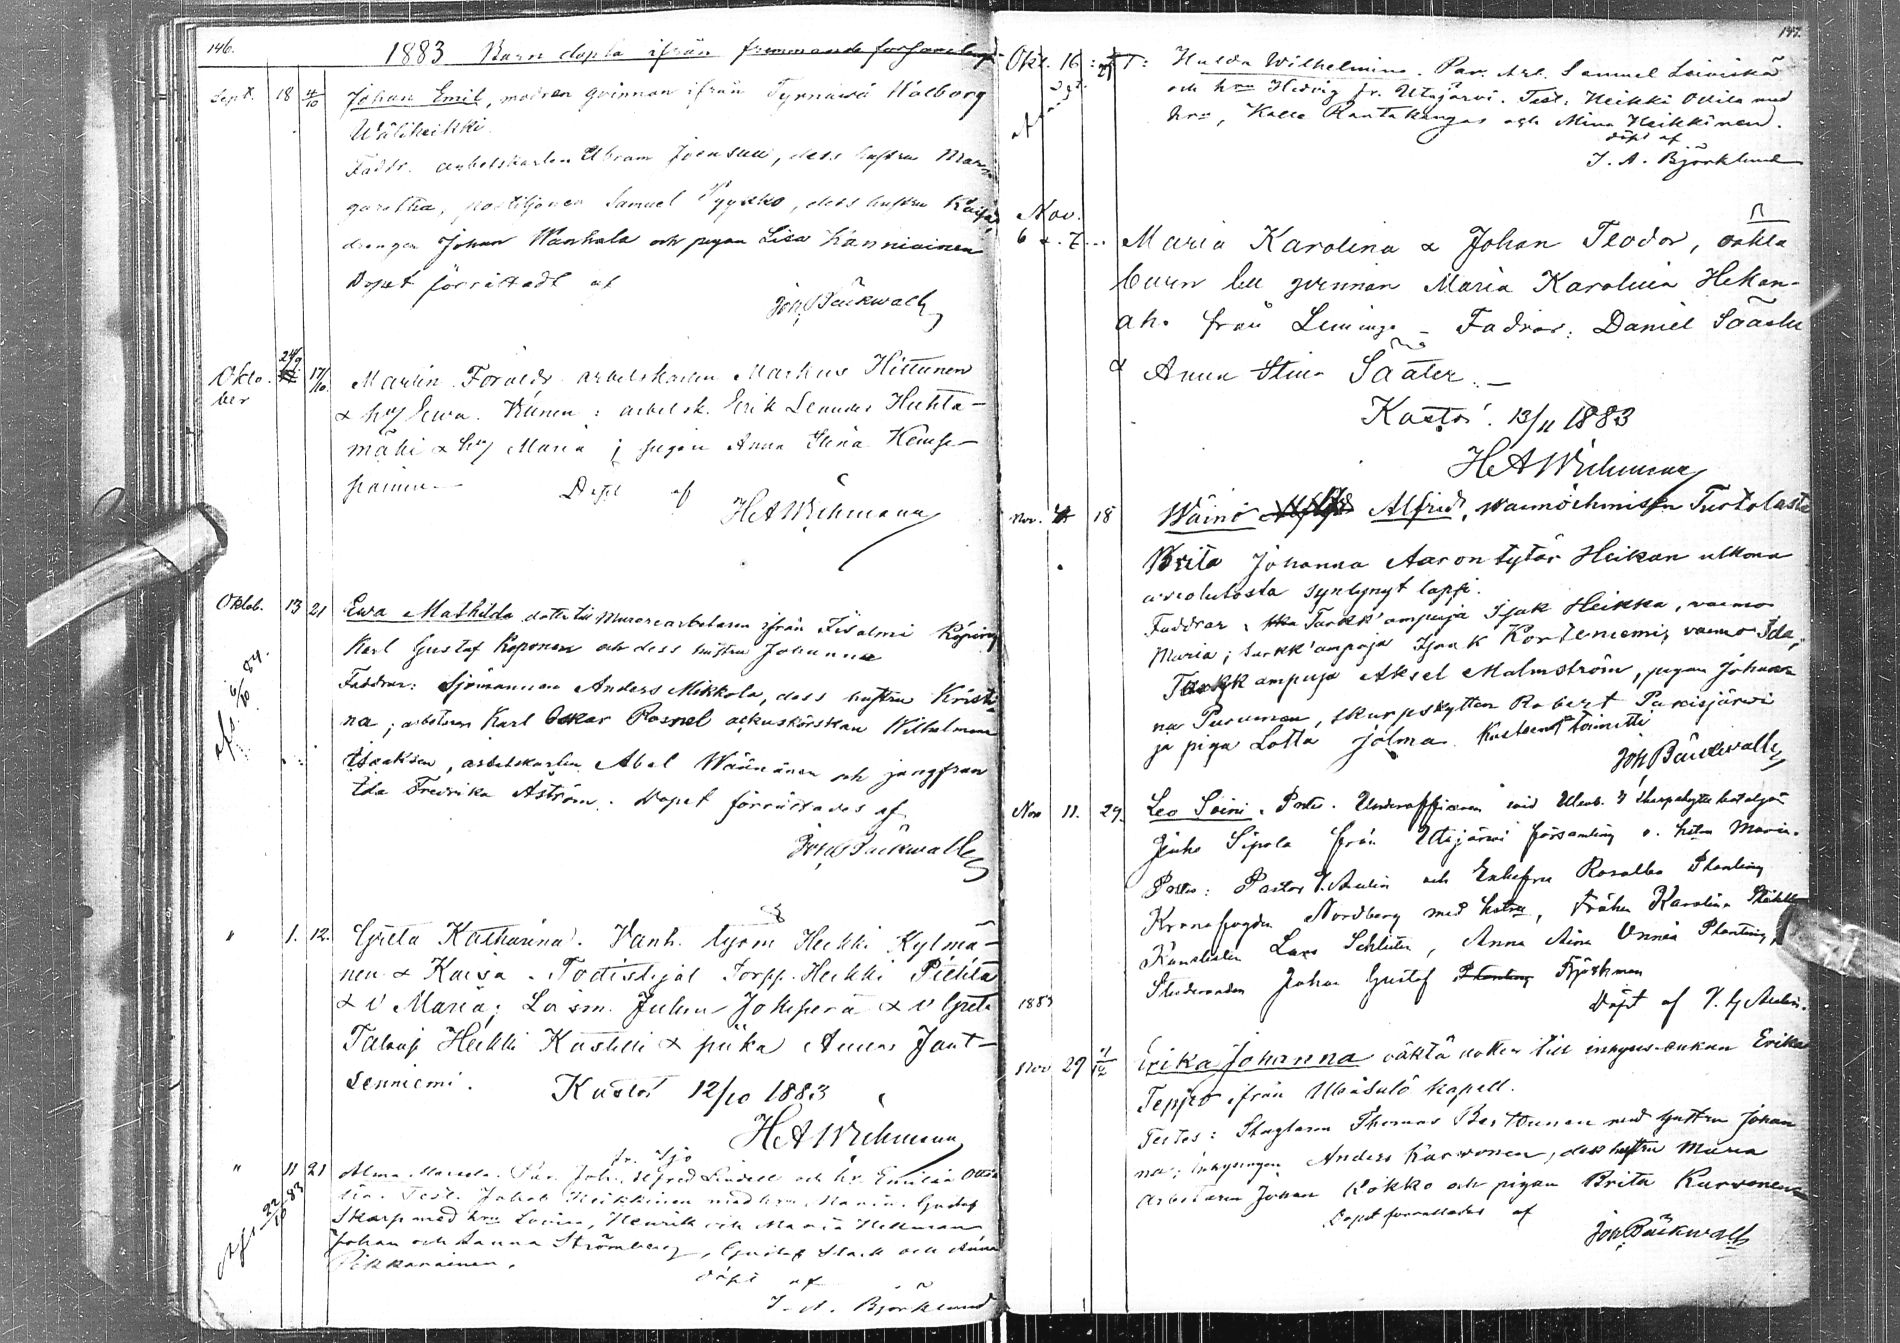 146.
1883 Barn döpta ifrån främmande församlingar
Sept. 18 4/10 Johan Emil, modren qvinnan ifrån Tyrnäwä Walborg
Wäliheikki.
Faddr. arbetskarlen Abram Joensuu, dess hustru Mar-
garetha, postiljonen Samuel Pyykkö, dess hustru Kaisa,
drängen Johan Wanhala och pigan Lisa Kanniainen
Dopet förrättadt af
Joh. Bäckwall
Oktober 24/9 17/10 Martin. Föräldr. arbetskarlen Markus Hiltunen
& hu Ewa. Wittnen: arbetsk. Erik Leander Huhta-
mäki & hu Maria; pigan Anna Stina Kemp-
painen
Döpt af
H A Wichmann
Oktob. 13 21 Ewa Mathilda dotter till Murarearbetaren ifrån Iisalmi Köping
Karl Gustaf Koponen och dess hustru Johanna
Faddrar: Sjömannen Anders Mikkola, dess hustru Kristi-
na; arbetaren Karl Oskar Rosnel, Wilhelmina
Isaksson, arbetskarlen Abel Wäänänen och jungfrun
Ida Fredrika Åström. Dopet förrättades af
afs. 6/10 84.
Joh. Bäckwall
" 1. 12. Greta Katharina. Vanh. työm Heikki Kylmä-
nen & Kaisa. Todistajat Torpp. Heikki Pietilä
& v Maria; Lois m. Juhan Jokiperä & v Greta
Talonp Heikki Kastelli & piika Anna Jout-
senniemi.
Kastoi 12/10 1883
H A Wichmann
" 11 21 Alma Maria. Par. Joh. Alfred Lindell och hu Emilia
fr. Ijo
Test. Jakob Heikkinen med hru Maria. Gustaf
Skarp med hru Lovisa, Henrik och Maria Hellman
Johan och Sanna Strömberg, Gustaf och Anna
Pikkarainen.
afs 22/10 83
döpt af
J. A. Björklund
147.
Okt. 16 Hulda Wilhelmina. Par. Arb. Samuel Loiviskä
och hru Hedvig fr. Utajärvi. Test: Heikki Ollila med
hru, Kalle Rantakangas och Mina Heikkinen.
döpt af
J. A. Björklund
Nov.
6 7 Maria Karolina & Johan Teodor, oäkta
barn till qvinnan Maria Karolina Hekan-
aho från Liminga – Fadrar: Daniel Sääter
& Anna Stina Sääter. –
Kastoi 13/11 1883
H A Wichmann
Nov. 18 Wäinö Alfred, waimoihmisen Turtolasta
Brita Johanna Aarontytär Heikan ulkona
avioliitosta syntynyt lapsi.
Faddrar: Tarkk'ampuja Isak Heikka, vaimo
Maria; tarkk'ampuja Isak Korteniemi, vaimo Ida,
Tarkkampuja Aksel Malmström, pigan Johan-
na Purunen, skarpskytten Robert Parisjärwi
ja piga Lotta Jolma. Kasteen toimitti
Joh. Bäckwall
Nov 11. 29. Leo Soini. Par. Underofficeren wid Uleab. Skarpskyttebataljon
Juho Sipola från Utajärvi församling o. hstn Maria.
Pastor V. Aulin och Enkefru Rosalba Planting
Kronofogden Nordberg med hstru, Fröken Karolina
Kanslisten Lars Schlüter, Anna Aina Onnea Planting,
Studeranden Johan Gustaf Planting Björkman
1883
Döpt af V. G Aulin.
Nov 29 4/12 Erika Johanna oäkta dotter till inhyses-enkan Erika
Teppo ifrån Uleåsalo kapell.
Testes: Slagtaren Thomas med hustru Johan-
na; inhysingen Anders Karvonen, dess hustru Maria
Arbetaren Johan Kokko och pigan Brita Karvonen
Dopet förrättades af
Joh. Bäckwall